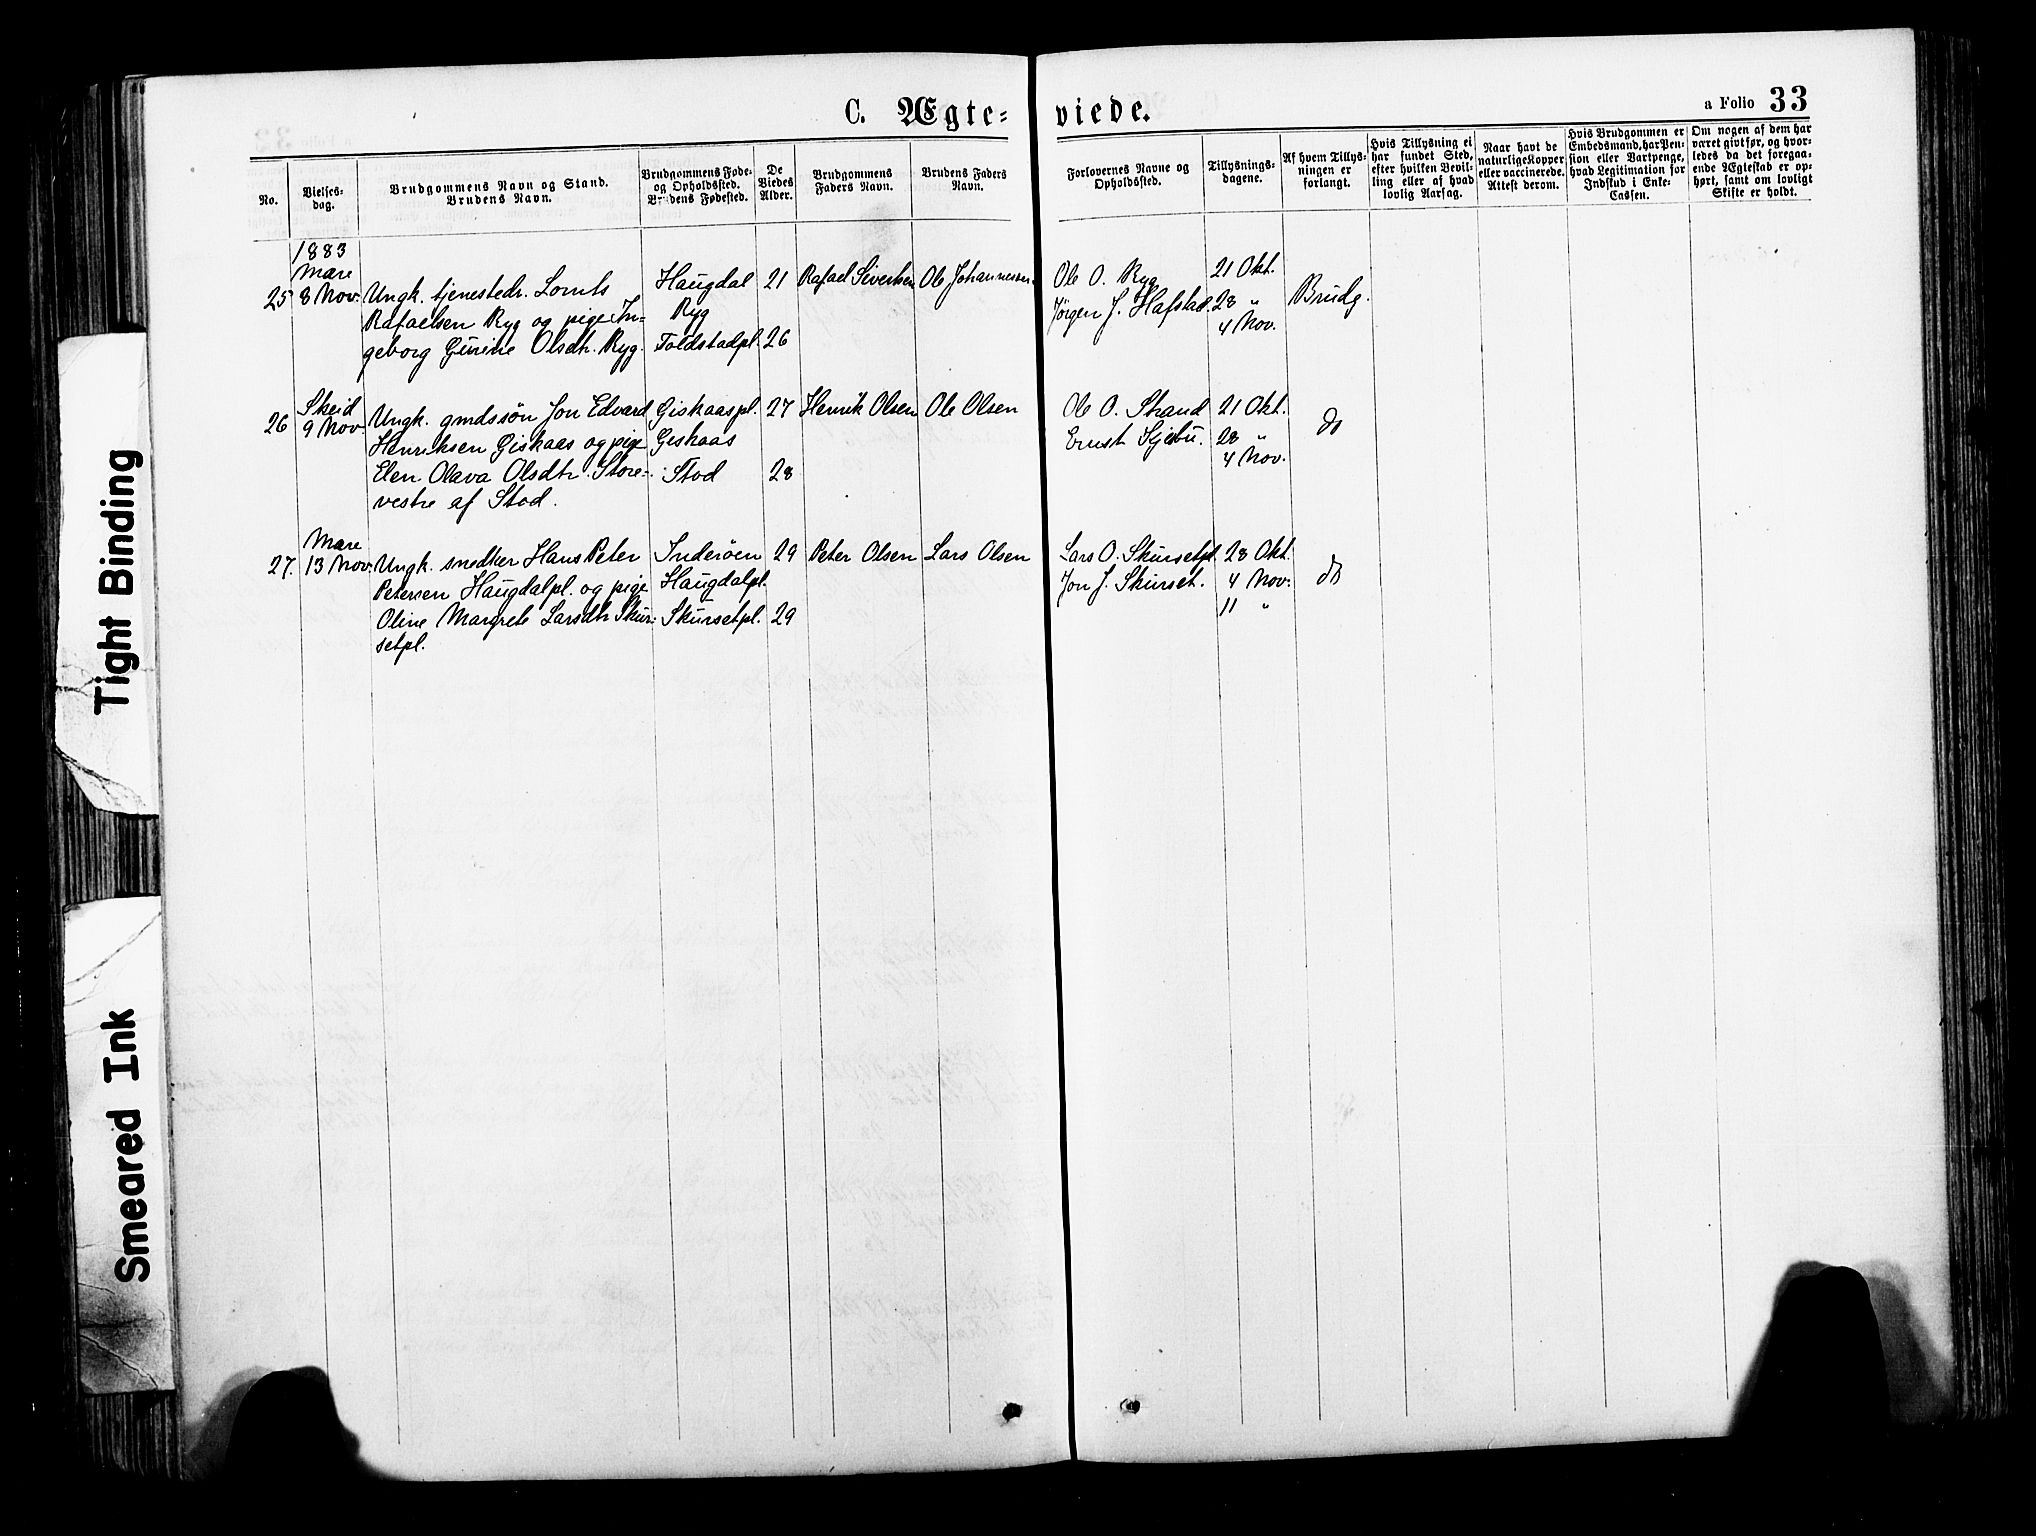 C. Ægte= viede.
a Folio 33
No.
Vielses-
dag.
Brudgommens Navn og Stand.
Brudens Navn.
Brudgommens Føde-
og Opholdssted.
Brudens Fødested.
De
Viedes
Alder.
Brudgommens
Faders Navn.
Brudens Faders
Navn.
Forlovernes Navne og
Opholdssted.
Tillysnings-
dagene.
Af hvem Tillys-
ningen er
forlangt.
Hvis Tillysning ei
har fundet Sted,
efter hvilken Bevil-
ling eller af hvad
lovlig Aarsag.
Naar havt de
naturlige Kopper
eller vaccinerede.
Attest derom.
Hvis Brudgommen er
Embedsmand, har Pen-
sion eller Vartpenge,
hvad Legitimation for
Indskud i Enke-
Cassen.
Om nogen af dem har
været gift før, og hvor-
ledes da det foregaa-
ende Ægteskab er op-
hørt, samt om lovligt
Skifte er holdt.
1883
Mære
25 8 Nov. Ungk. tjenestedr. Lornts Haugdal 21 Rafael Sivertsen Ole Johannesen Ole O. Ryg 21 Okt. Brudg.
Rafaelsen Ryg og pige In= Ryg Jørgen J. Hafstad. 28 "
geborg Gurine Olsdtr. Ryg. Toldstadpl. 26 4 Nov.
Skeid
26 9 Nov. Ungk. gmdssøn Jon Edvard Giskaaspl. 27 Henrik Olsen Ole Olsen Ole O. Strand 21 Okt. do
Henriksen Giskaas og pige Giskaas Ernst Skjebu. 28 "
Elen Olava Olsdtr. Store= Stod 28 4 Nov.
vestre af Stod.
Mære
27. 13 Nov. Ungk. snedker Hans Peter Inderøen 29 Peter Olsen Lars Olsen Lars O. Skursetpl. 28 Okt. do
Petersen Haugdalpl. og pige Haugdalpl. Jon J. Skurset. 4 Nov.
Oline Margrete Larsdtr Skur= Skursetpl. 29 11 "
setpl.
Tight Binding
Smeared Ink